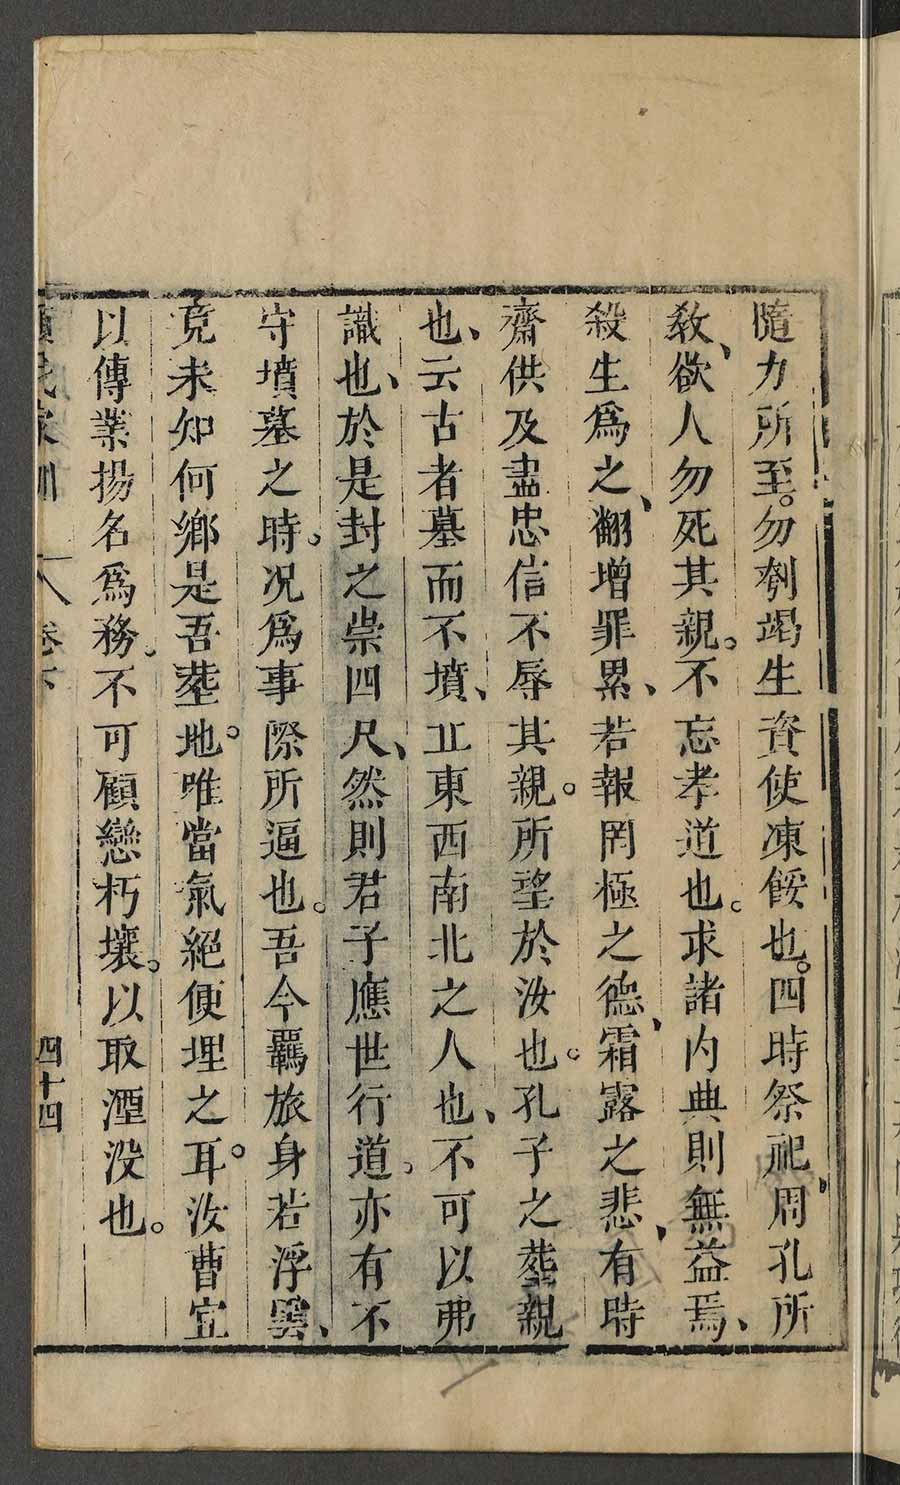 隨力所至。勿刳竭生資使凍餒也。四時祭祀、周孔所
敎、欲人勿死其親。不忘孝道也。求諸内典則無益焉、
殺生爲之、翻增罪累、若報罔極之德、霜露之悲、有時
齋供及盡忠信不辱其親。所望於汝也。孔子之塟親
也、云古者墓而不墳、丘東西南北之人也、不可以弗
識也、於是封之崇四尺、然則君子應世行道。亦有不
守墳墓之時。况爲事際所逼也。吾今羈旅身若浮雲、
竟未知何鄉是吾塟地。唯當氣絕便埋之耳。汝曹宜
以傳業揚名爲務。不可顧戀朽壤。以取湮没也。
顏氏家訓 卷下 四十四